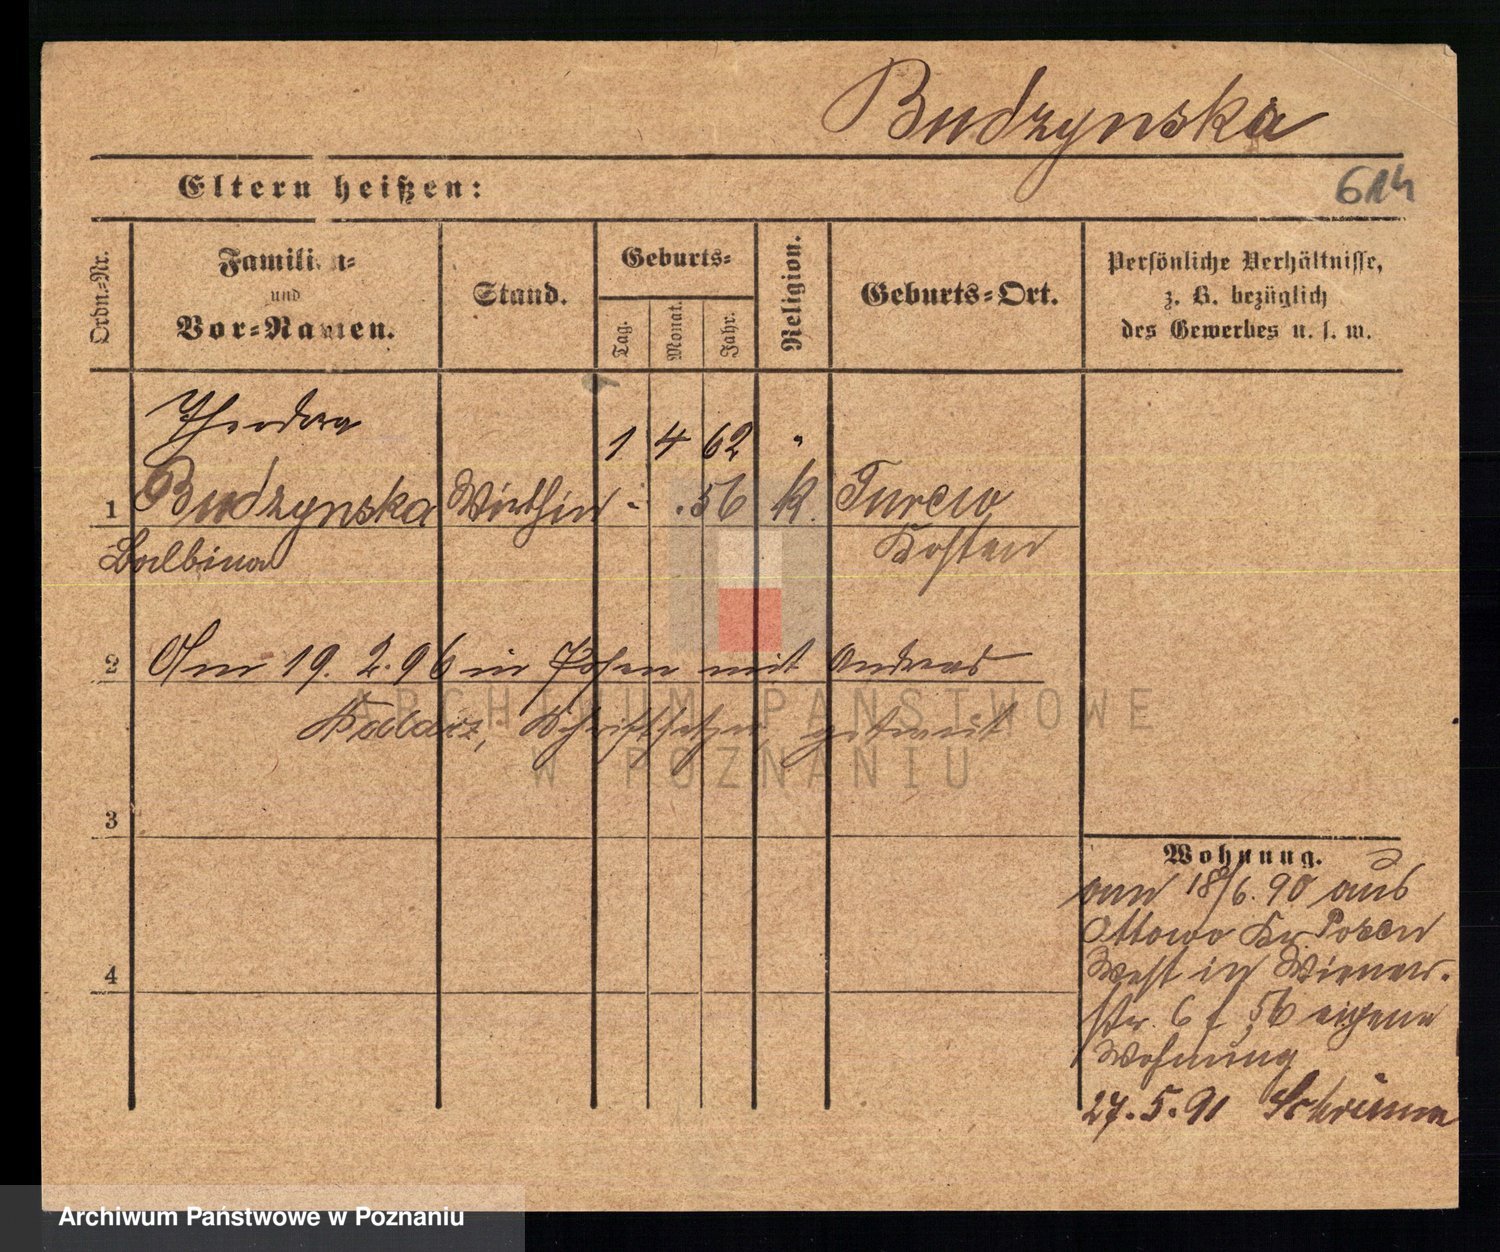 Budzynska
Eltern heißen:
614
Ordn.-Nr.
Familien-
und
Vor-Namen.
Stand.
Geburts-
Tag.
Monat.
Jahr.
Religion.
Geburts-Ort.
Persönliche Verhältnisse,
z. B. bezüglich
des Gewerbes u. s. w.
Theodora 1 4 62 "
1 Budzynska Wirthin - . 56 k. Turew
Balbina Kosten
2 Am 19. 2. 96 in Posen mit Andreas
Kalacz, Schriftsetzer getraut
3
4
Wohnung.
18/6. 90 aus
Ottowo Kr. Posen
West in Wiener-
str. 6 f 56 eigene
Wohnung
27. 5. 91 Schrimm
ARCHIWUM PAŃSTWOWE
W POZNANIU
Archiwum Państwowe w Poznaniu